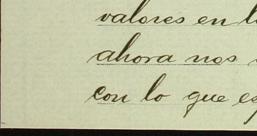 valores en l
ahora nos
con lo que es